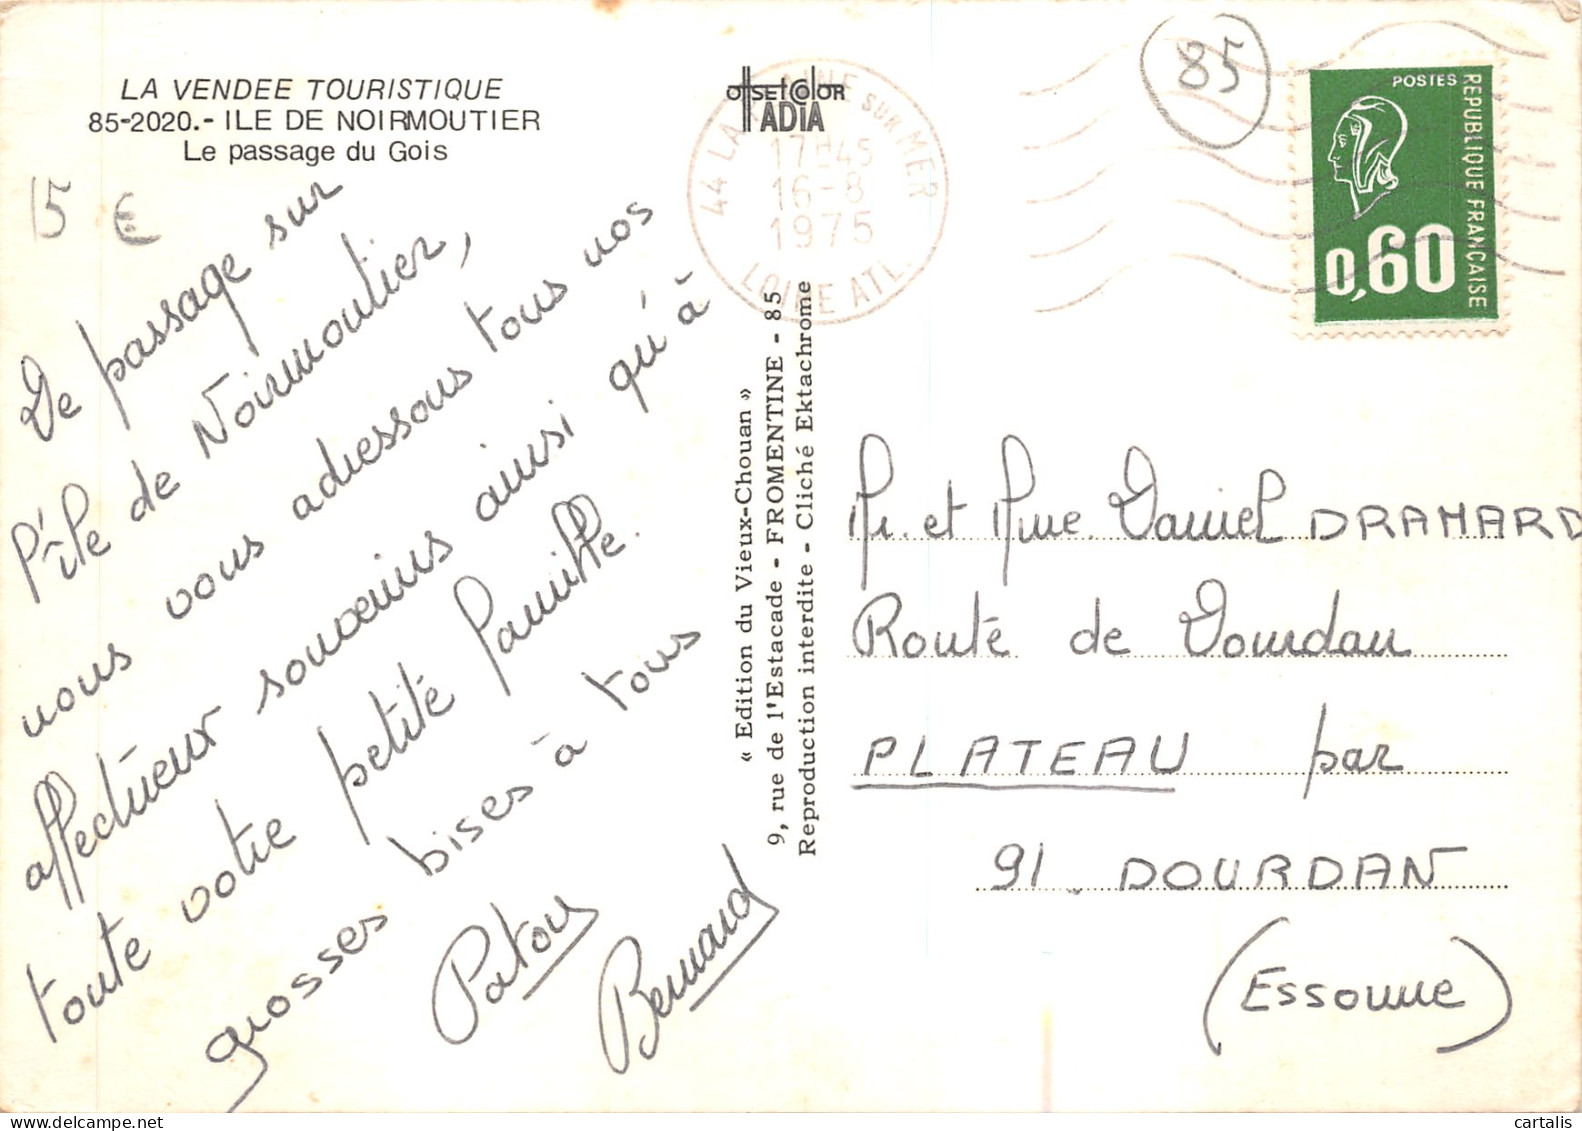 LA VENDEE TOURISTIQUE
85-2020.- ILE DE NOIRMOUTIER
Le passage du Gois
15 €
De passage sur
l'île de Noirmoutier,
nous vous adressons tous nos
affectueux souvenirs ainsi qu'à
toute votre petite famille.
grosses bises à tous
Patou
Bernard
offset color
IADIA
44 LA PLAINE SUR MER
17H45
16-8
1975
LOIRE ATL.
« Edition du Vieux-Chouan »
9, rue de l'Estacade - FROMENTINE - 85
Reproduction interdite - Cliché Ektachrome
85
POSTES
REPUBLIQUE FRANÇAISE
0,60
Mr. et Mme Daniel DRAMARD
Route de Dourdan
PLATEAU par
91. DOURDAN
(Essonne)
cartalis